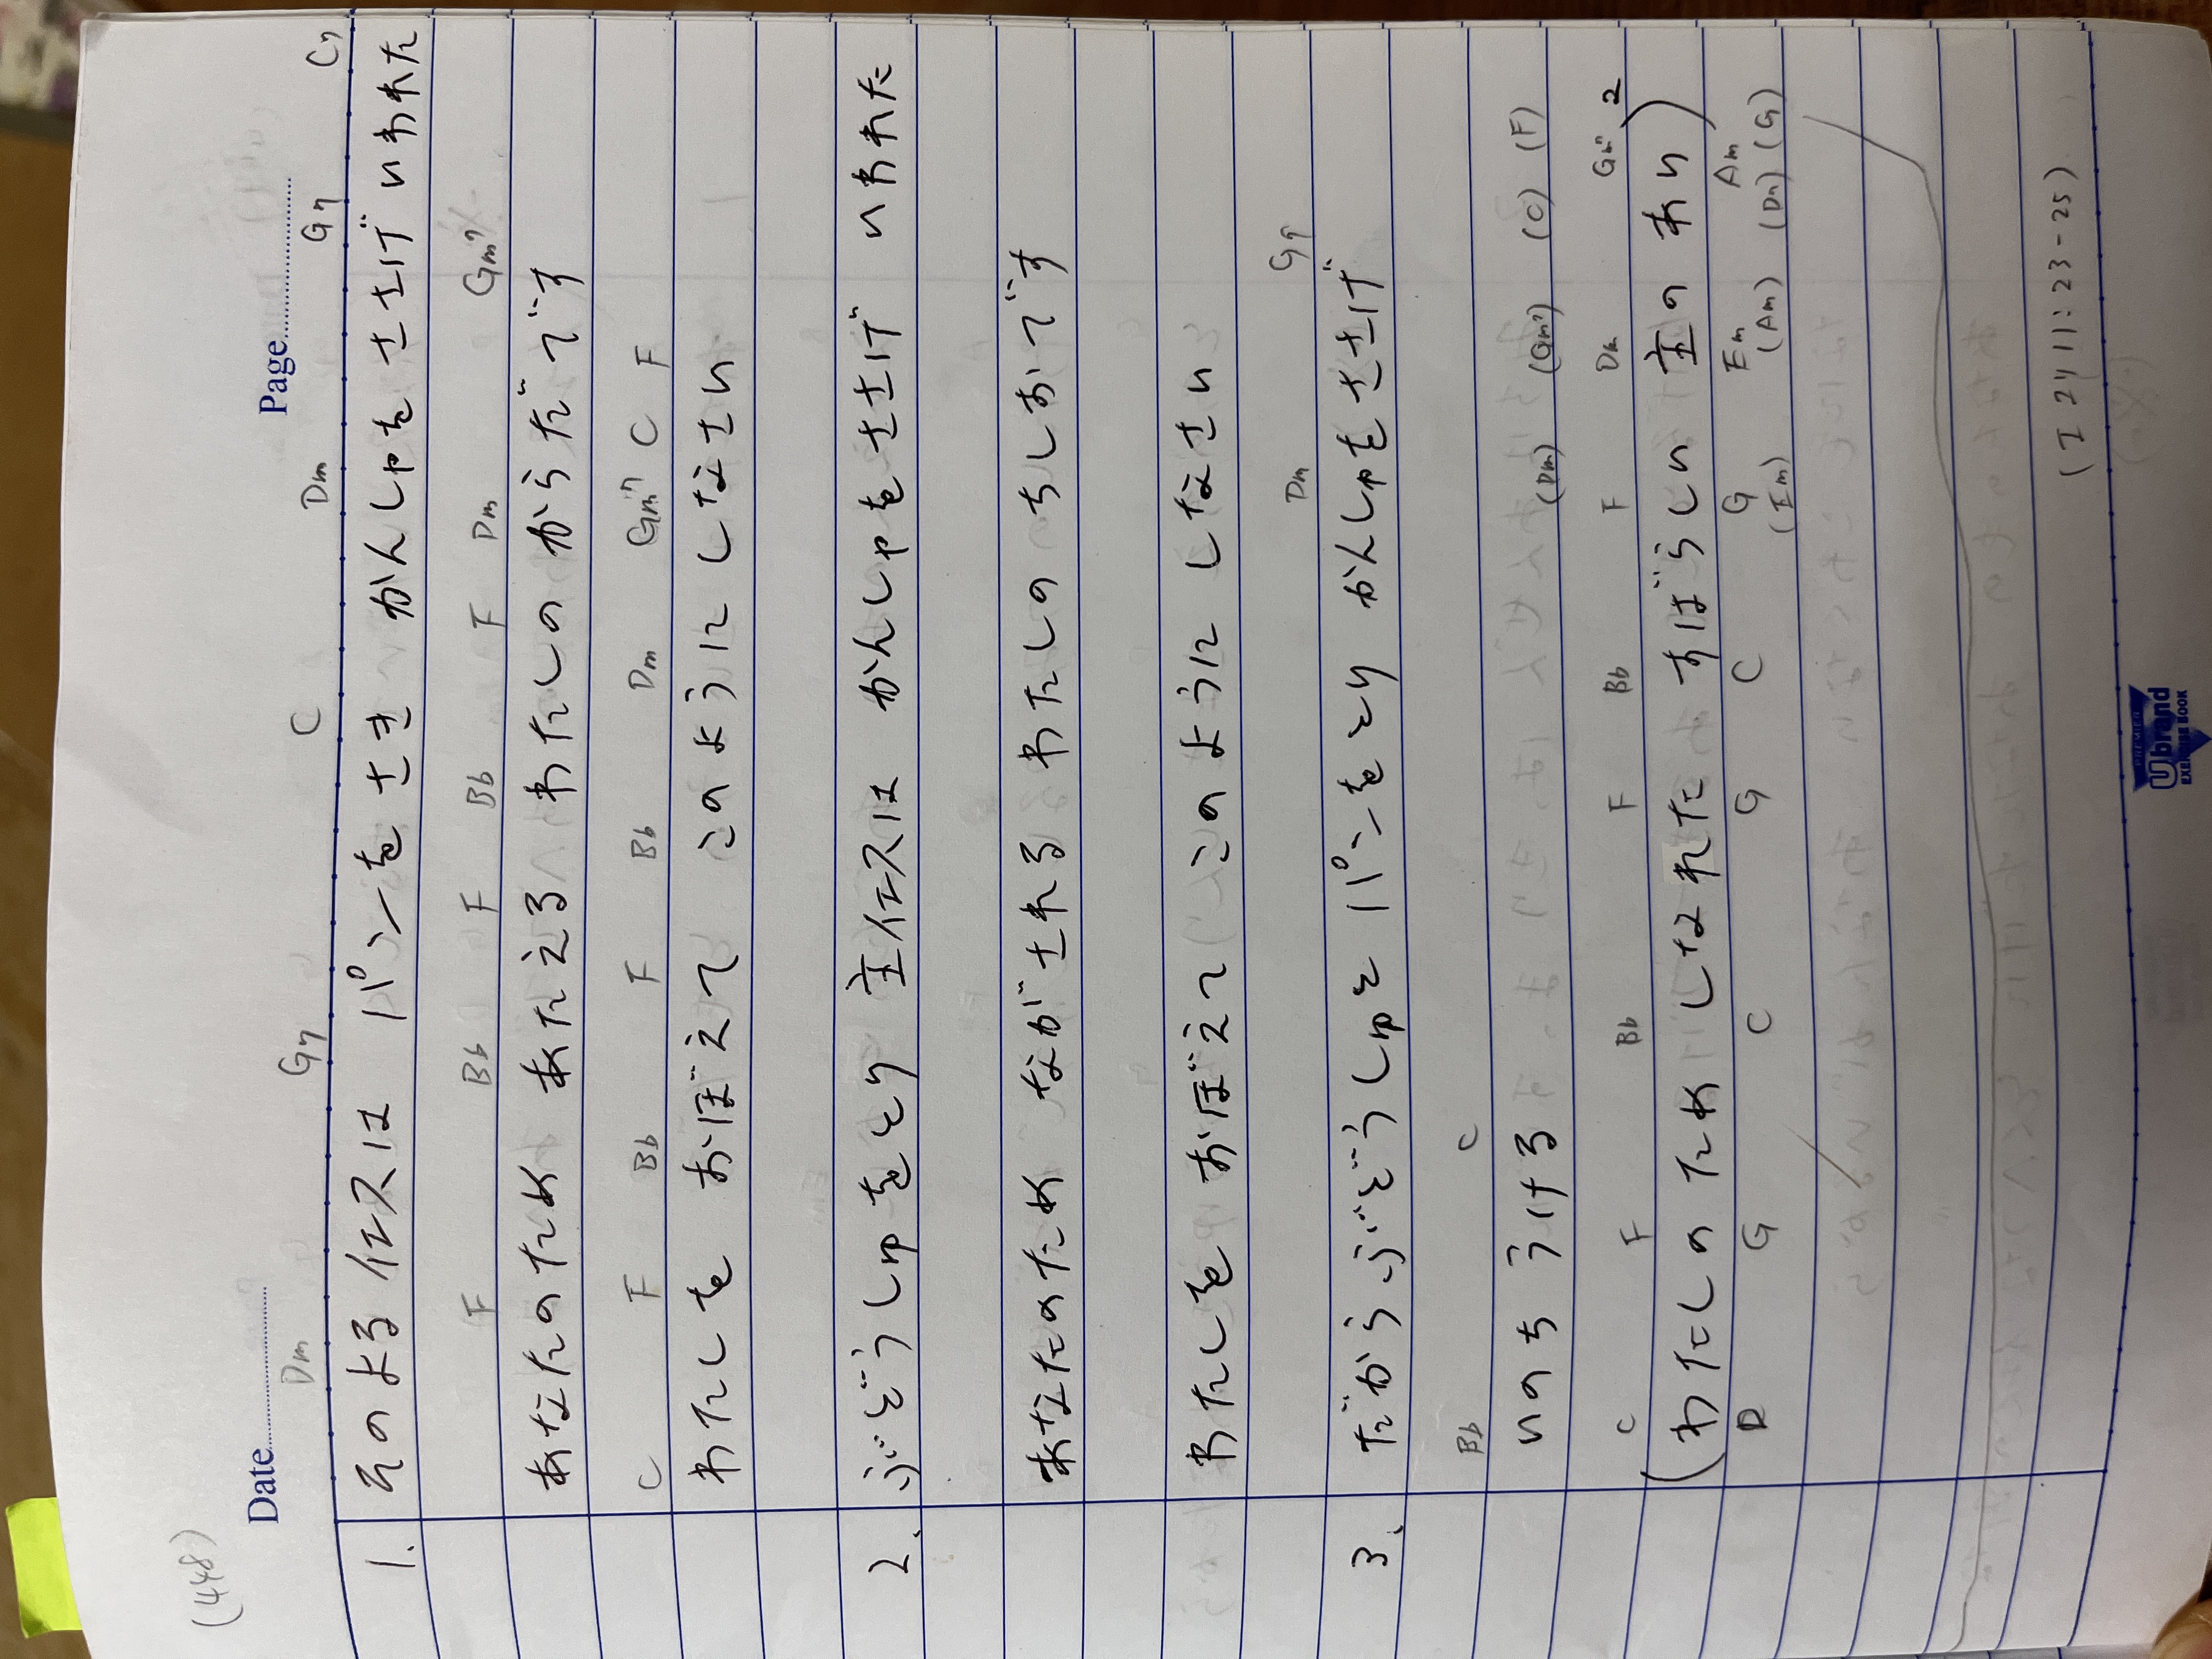 (448)
Date Page
Dm G7 C Dm G7 C7
1. そのよる イエスは パンをさき かんしゃをささげ いわれた
F Bb F Bb F Dm Gm7
あなたのため あたえる わたしの からだです
C F Bb F Bb Dm Gm7 C F
わたしを おぼえて このように しなさい
2. ぶどうしゅをとり 主イエスは かんしゃをささげ いわれた
あなたのため ながされる わたしの ちしおです
わたしを おぼえて このように しなさい
Dm G7
3. だから ぶどうしゅと パンをとり かんしゃをささげ
Bb C
いのち うける (Dm) (Gm7) (C) (F)
C F Bb F Bb F Dm Gm7 2
(わたしの ため しなれた すばらしい 主の あい)
D G C G C G Em Am
(Em) (Am) (Dm) (G)
(I コリ 11:23-25)
PREMIER
Ubrand
EXERCISE BOOK